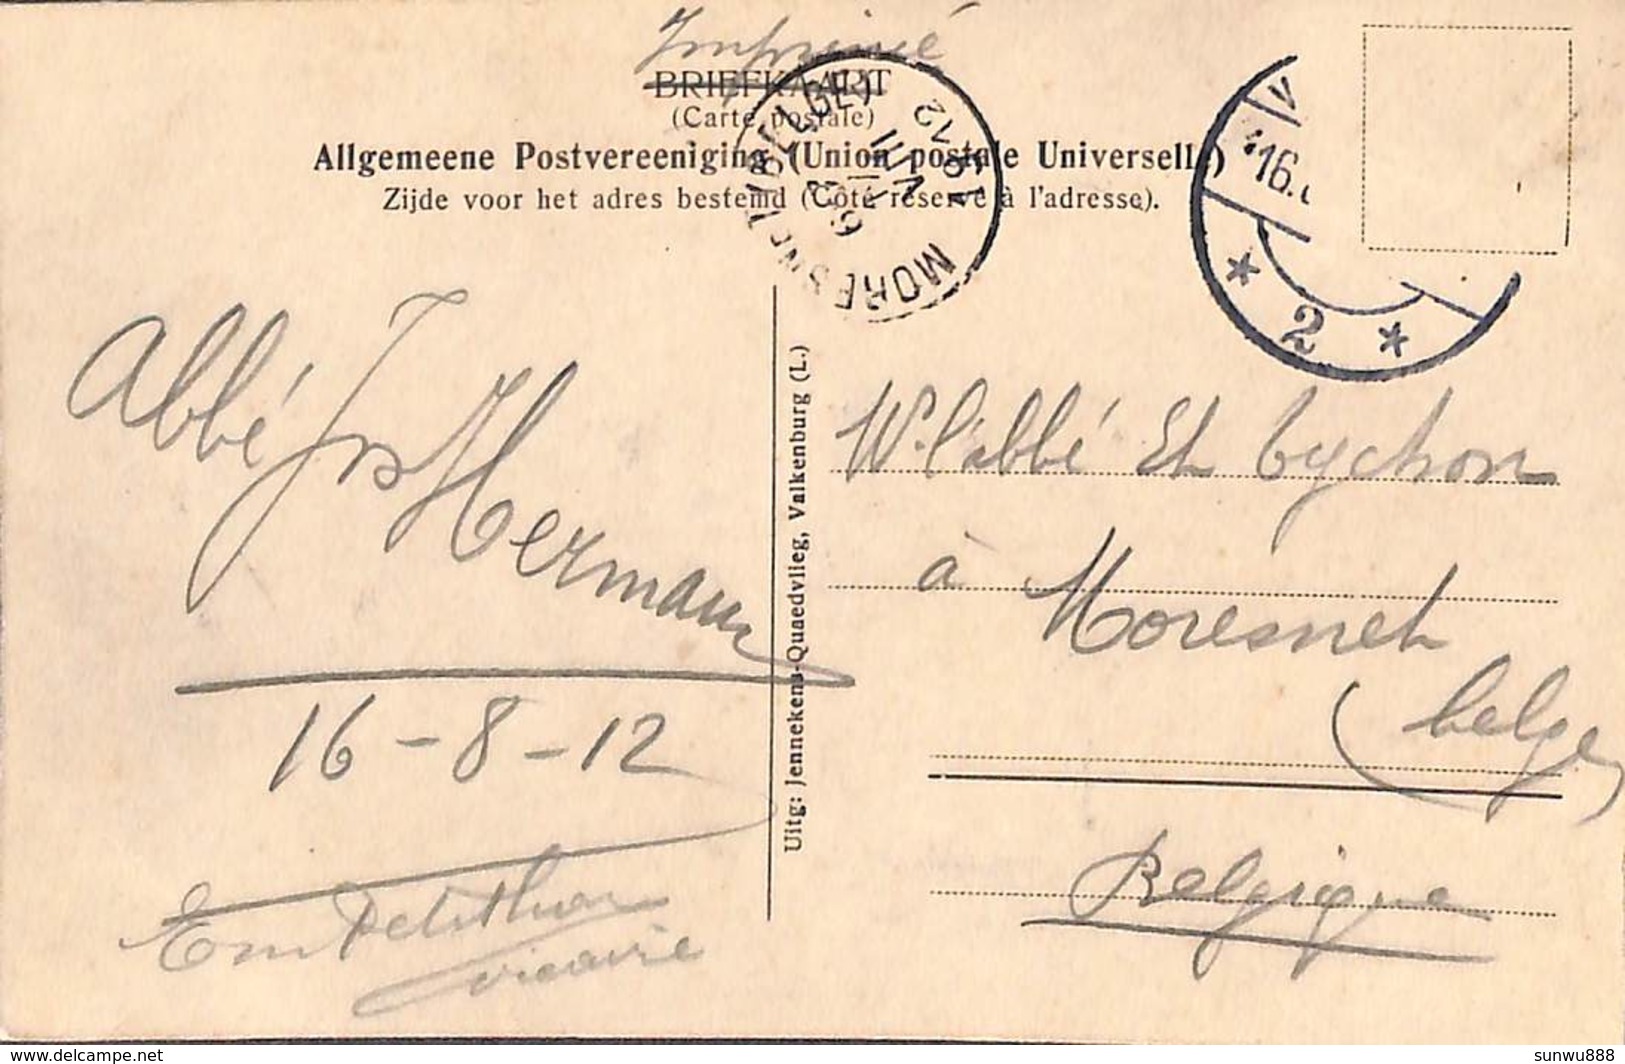 Imprimé
BRIEFKAART
(Carte postale)
Allgemeene Postvereeniging (Union postale Universelle)
Zijde voor het adres bestemd (Côté réservé à l'adresse).
MORESNET (BELGE)
VIII
1912
V
16.
2
Abbé Jos Hermann
16-8-12
vicaire
Uitg: Jennekens-Quaedvlieg, Valkenburg (L.)
l'abbé
à Moresnet
(belge)
Belgique
delcampe.net
sunwu888